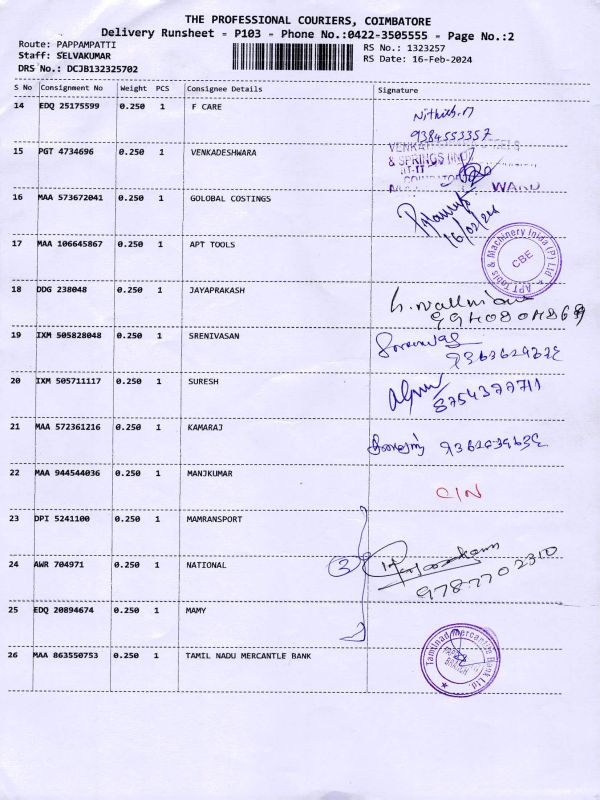 THE PROFESSIONAL COURIERS, COIMBATORE
Delivery Runsheet - P103 - Phone No.:0422-3505555 - Page No.:2
Route: PAPPAMPATTI
Staff: SELVAKUMAR
DRS No.: DCJB132325702
RS No.: 1323257
RS Date: 16-Feb-2024
S No Consignment No Weight PCS Consignee Details Signature
14 EDQ 25175599 0.250 1 F CARE
Nithish.M
9384553357
15 PGT 4734696 0.250 1 VENKADESHWARA
& SPRINGS
16 MAA 573672041 0.250 1 GOLOBAL COSTINGS
16/02/24
17 MAA 106645867 0.250 1 APT TOOLS
APT Tools & Machinery Inida (P) Ltd
CBE
18 DDG 238048 0.250 1 JAYAPRAKASH
19 IXM 505828048 0.250 1 SRENIVASAN
20 IXM 505711117 0.250 1 SURESH
8754377711
21 MAA 572361216 0.250 1 KAMARAJ
22 MAA 944544036 0.250 1 MANJKUMAR
C/N
23 DPI 5241100 0.250 1 MAMRANSPORT
24 AWR 704971 0.250 1 NATIONAL
3
9787702310
25 EDQ 20894674 0.250 1 MAMY
26 MAA 863550753 0.250 1 TAMIL NADU MERCANTILE BANK
Tamilnad Mercantile Bank Ltd.
BRANCH